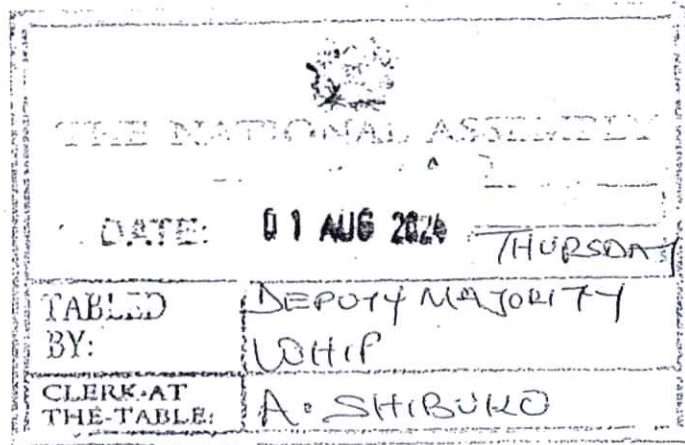 THE NATIONAL ASSEMBLY
DATE: 01 AUG 2024 THURSDAY
TABLED BY: DEPUTY MAJORITY
WHIP
CLERK-AT
THE-TABLE: A. SHIBUKO